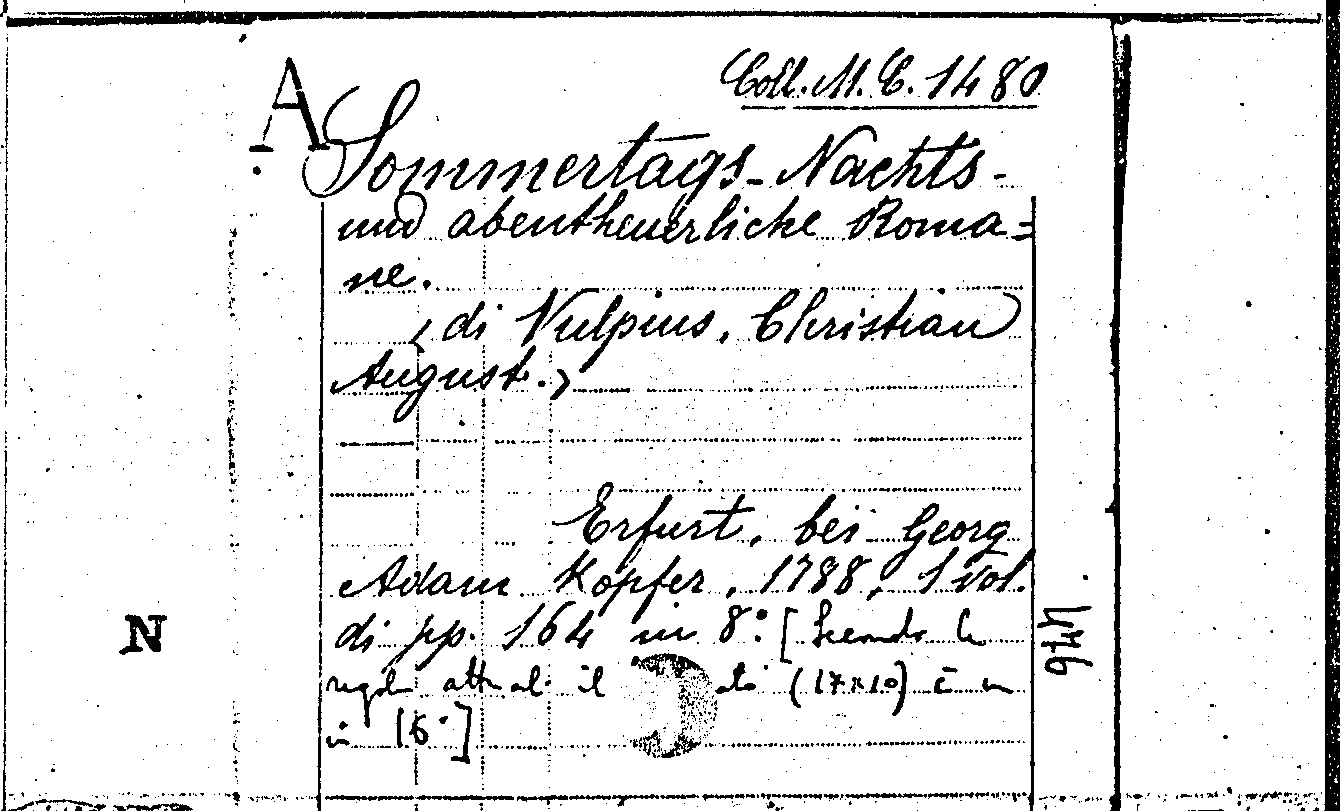 Coll. M. C. 1480
A
Sommertags-Nachts-
und abentheuerliche Roma=
ne.
(di Vulpius, Christian
August.)
Erfurt, bei Georg
Adam Kopfer, 1788, 1 vol.
di pp. 164 in 8°: [Secondo le
regole attuali il (17×10) è un
in 16°]
N